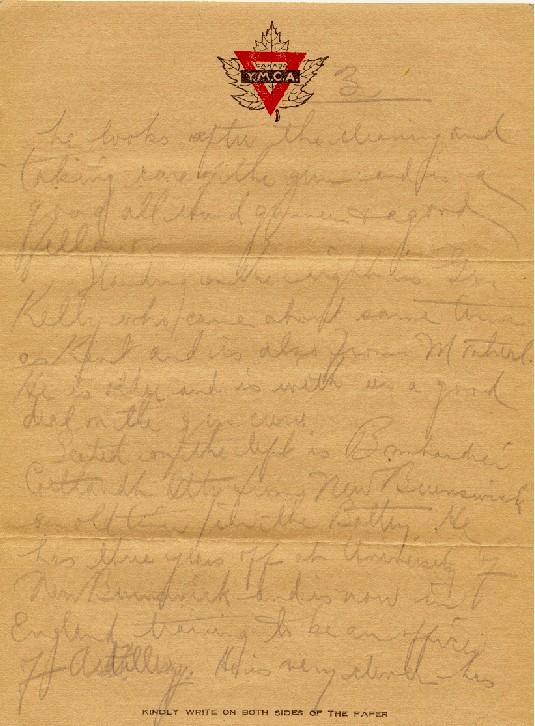 CANADA
Y.M.C.A.
3
he looks after the cleaning and
taking care of the gun and is a
good all round gunner & a good
fellow.
Standing on the right is Gnr
Kelly who came about same time
as Kent and is also from Montreal.
He is and is with us a good
deal on the gun crew.
Seated on the left is Bombardier
Cortlandt Otty from New Brunswick
an old timer in the Battery. He
has three years off at University of
New Brunswick and is now in
England training to be an officer
of Artillery. He is very clever - has
KINDLY WRITE ON BOTH SIDES OF THE PAPER